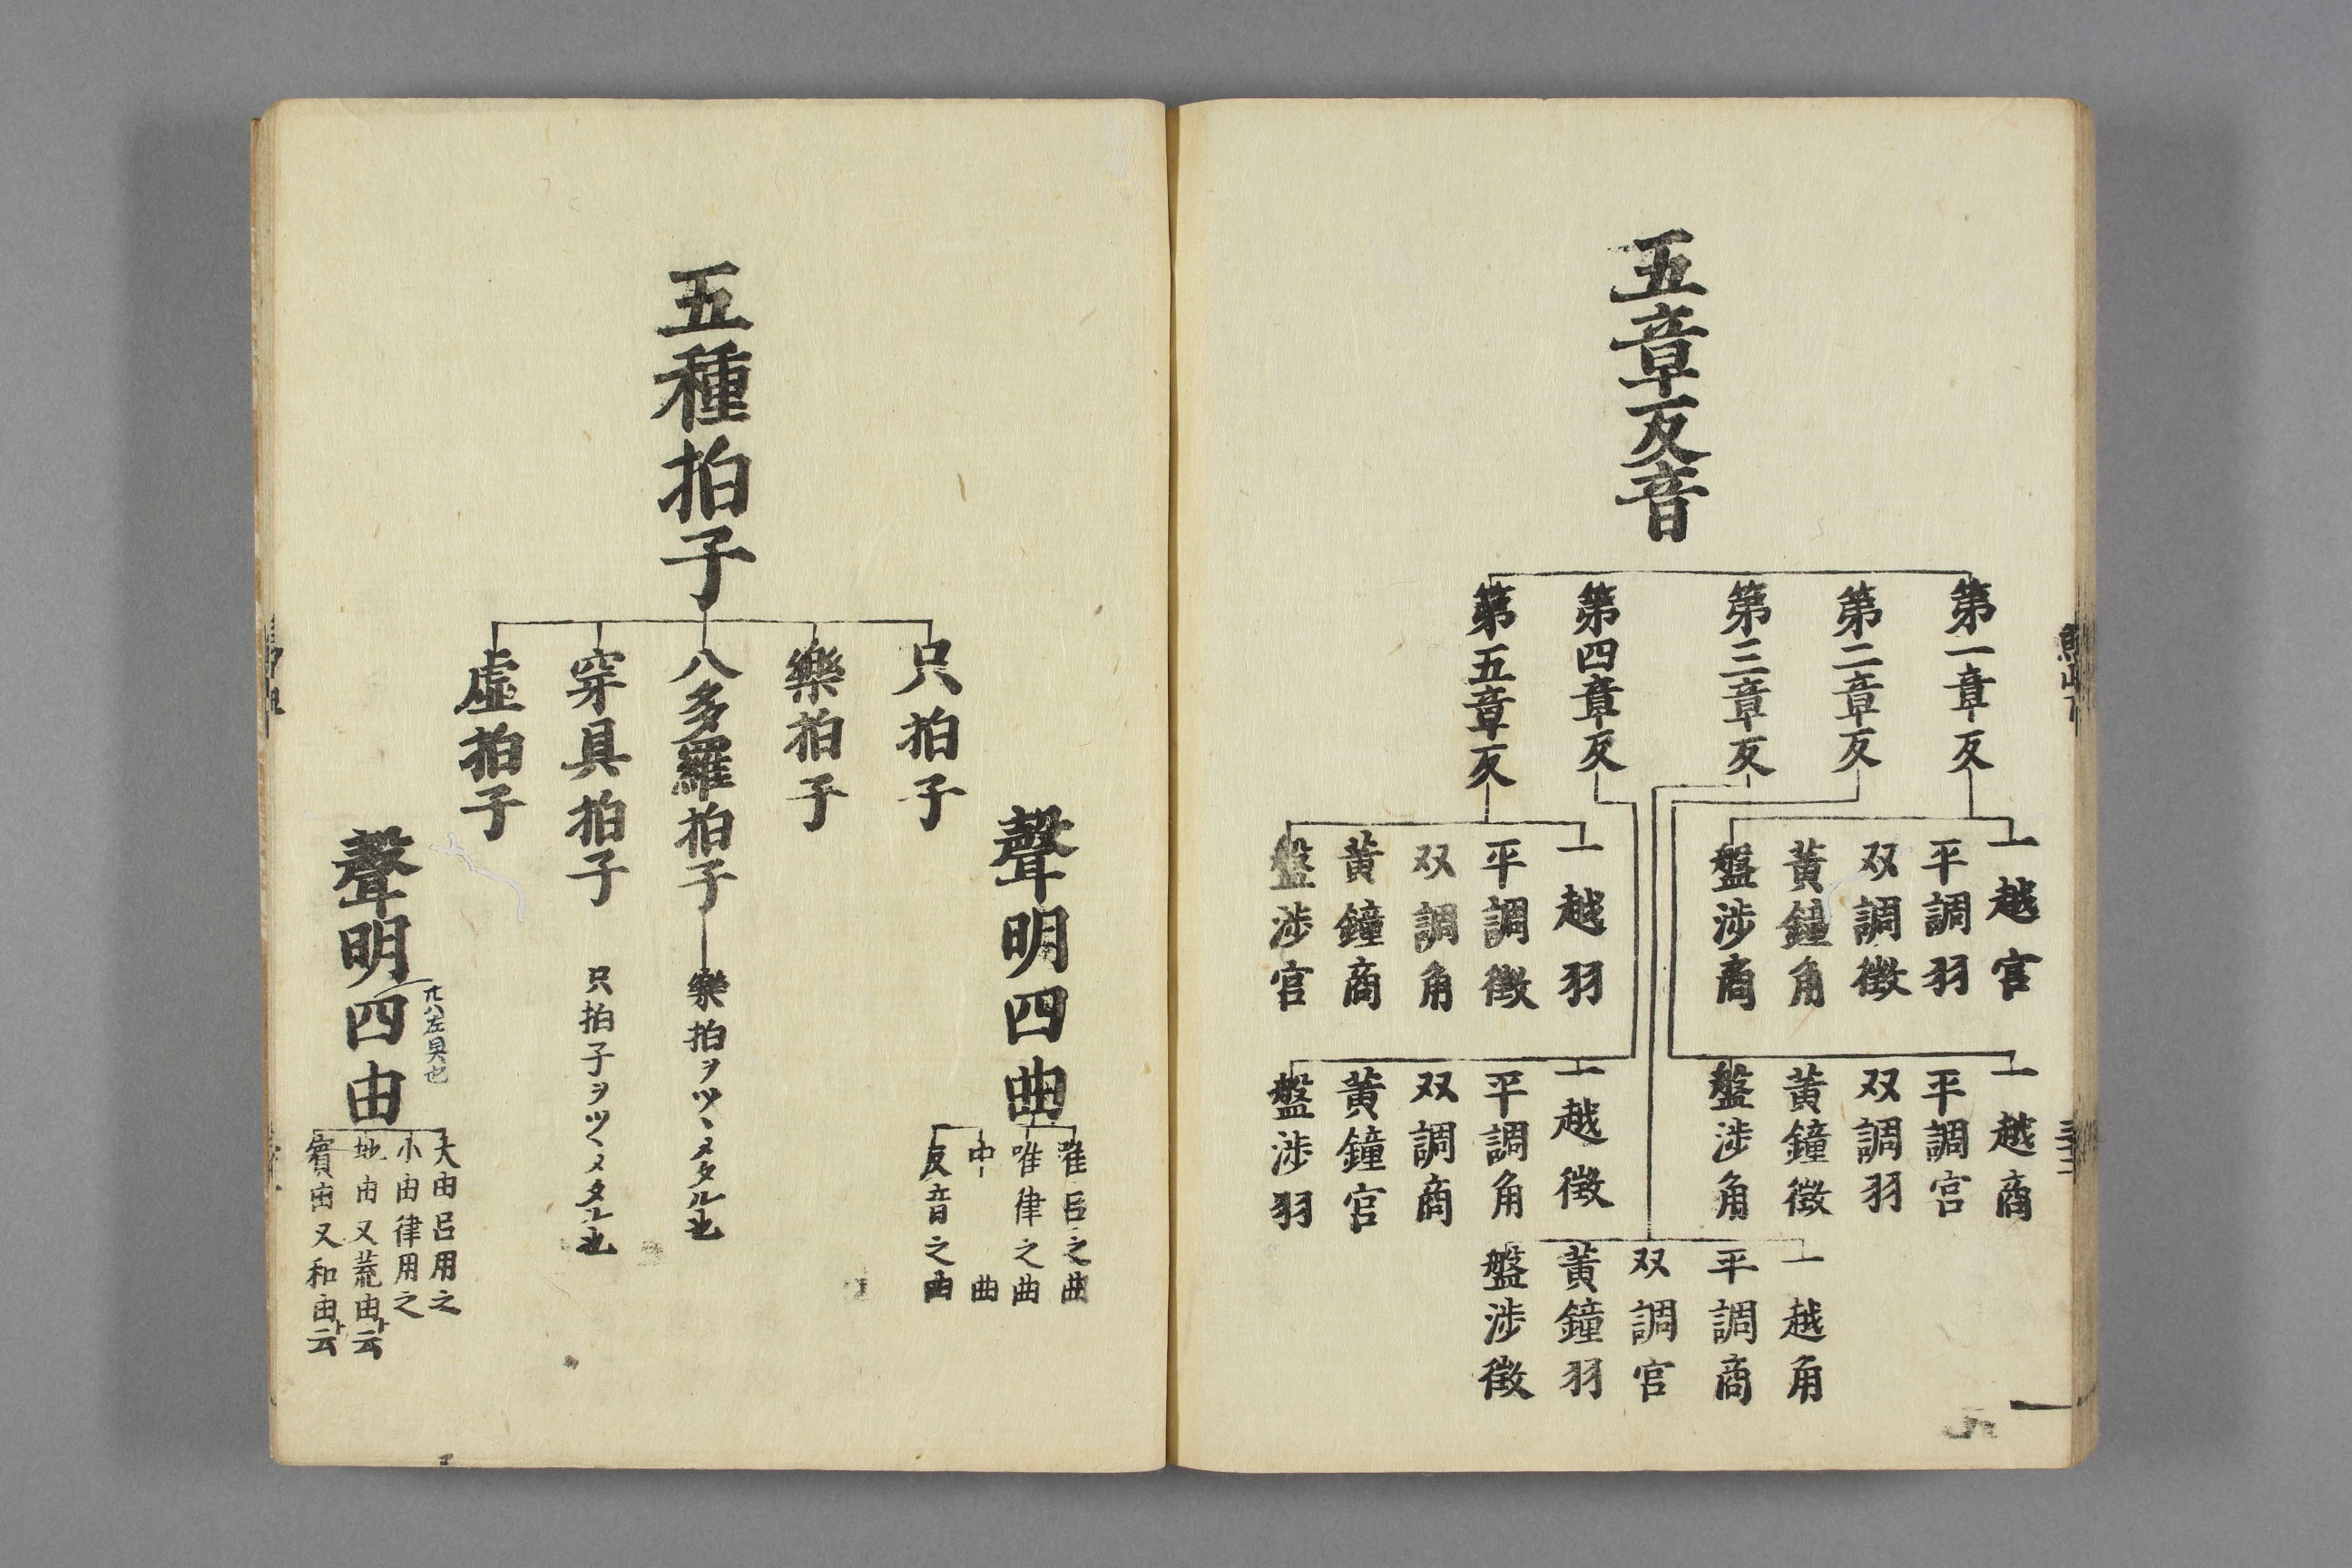 五章反音
第一章反
一越宮
平調羽
双調徴
黄鐘角
盤渉商
第二章反
一越商
平調宮
双調羽
黄鐘徴
盤渉角
第三章反
一越角
平調商
双調宮
黄鐘羽
盤渉徴
第四章反
一越徴
平調角
双調商
黄鐘宮
盤渉羽
第五章反
一越羽
平調徴
双調角
黄鐘商
盤渉宮
聲明四曲
唯呂之曲
唯律之曲
中曲
反音之曲
五種拍子
只拍子
樂拍子
八多羅拍子
樂拍ヲツヽメタル也
穿具拍子
只拍子ヲツヽメタル也
虚拍子
聲明四由
大由呂用之
小由律用之
地由又荒由ト云
賓由又和由ト云